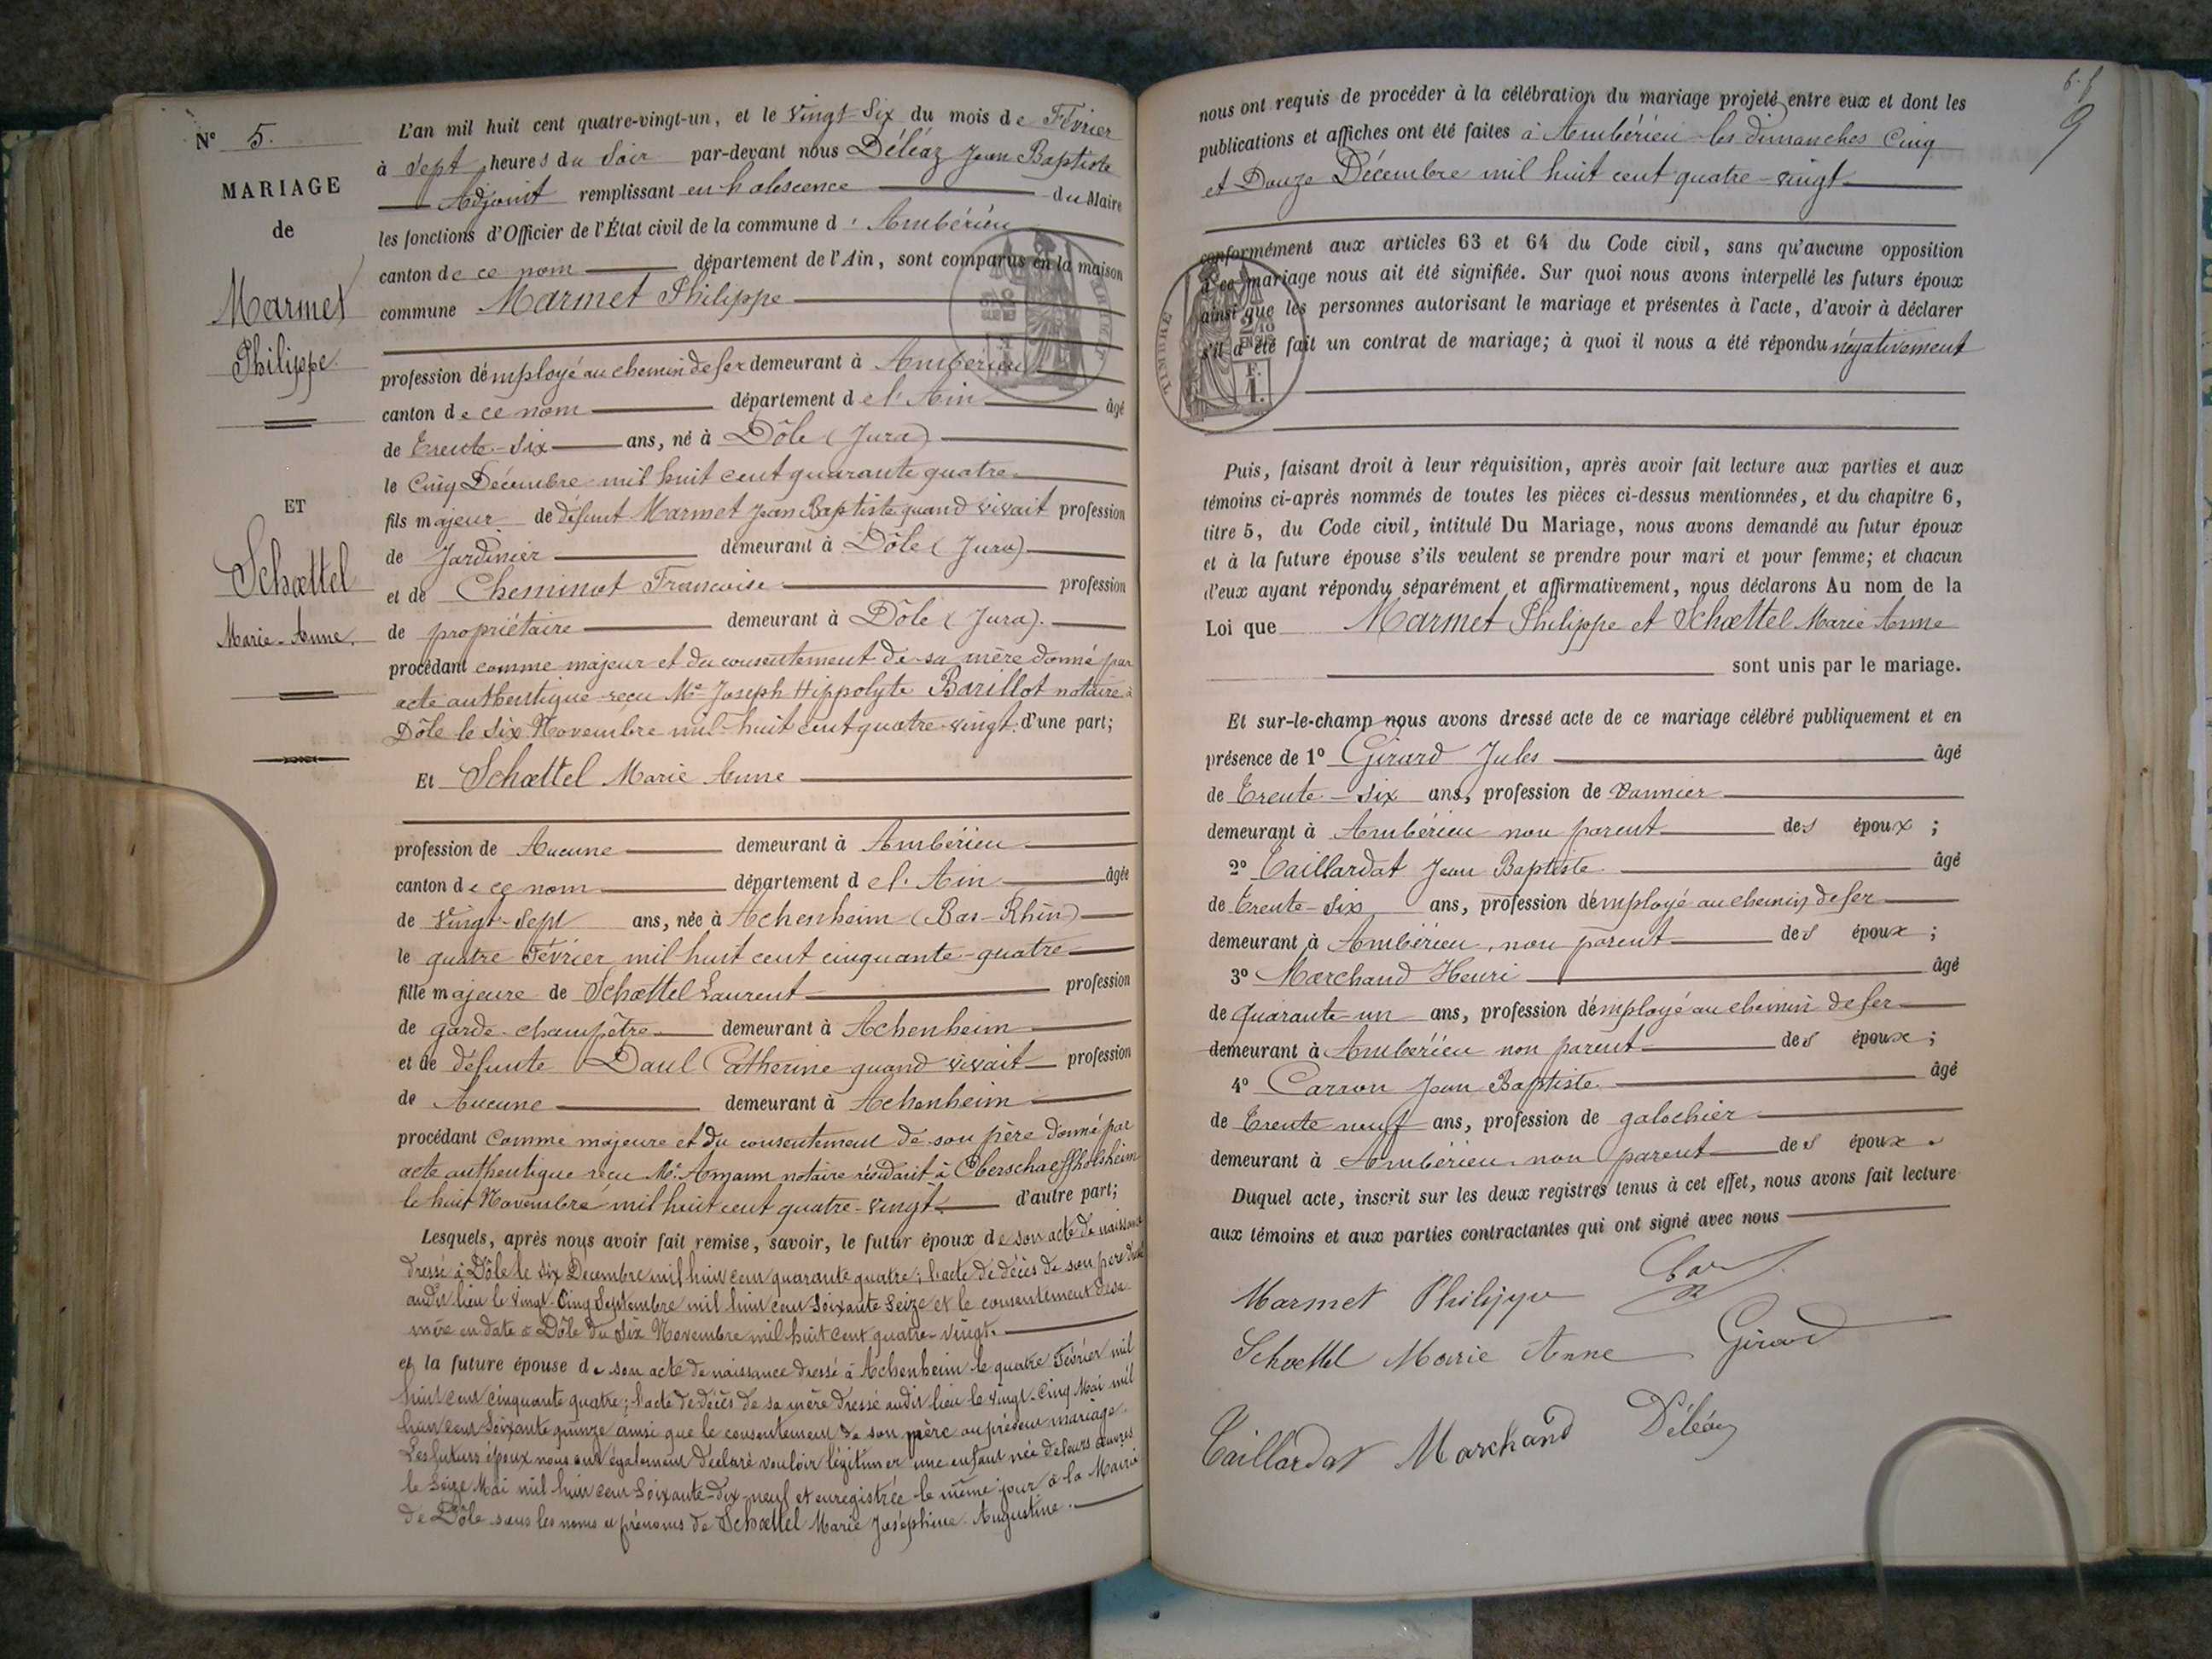 N° 5.
MARIAGE
de
Marmet
Philippe.
ET
Schœttel
Marie-Anne.
L'an mil huit cent quatre-vingt-un, et le Vingt-Six du mois de Février
à Sept heures du Soir par-devant nous Déléaz Jean Baptiste
Adjoint remplissant en l'absence du Maire
les fonctions d'Officier de l'État civil de la commune d'Ambérieu
canton de ce nom département de l'Ain, sont comparus en la maison
commune Marmet Philippe
profession d'employé au chemin de fer demeurant à Ambérieu
canton de ce nom département de l'Ain âgé
de Trente-Six ans, né à Dôle (Jura)
le Cinq Décembre mil huit cent quarante quatre
fils majeur de défunt Marmet Jean Baptiste quand vivait profession
de Jardinier demeurant à Dôle (Jura)
et de Cheminot Francoise profession
de propriétaire demeurant à Dôle (Jura).
procédant comme majeur et du consentement de sa mère donné par
acte authentique reçu Me Joseph Hippolyte Barillot notaire à
Dôle le Six Novembre mil-huit cent quatre-vingt. d'une part;
Et Schœttel Marie Anne
profession de Aucune demeurant à Ambérieu
canton de ce nom département de l'Ain âgée
de Vingt-Sept ans, née à Achenheim (Bas-Rhin)
le quatre Février mil huit cent cinquante-quatre
fille majeure de Schœttel Laurent profession
de garde-champêtre demeurant à Achenheim
et de défunte Daul Catherine quand vivait profession
de Aucune demeurant à Achenheim
procédant comme majeure et du consentement de son père donné par
acte authentique reçu Me Amann notaire résidant à Oberschaeffholsheim
le huit Novembre mil huit cent quatre-vingt. d'autre part;
Lesquels, après nous avoir fait remise, savoir, le futur époux de son acte de naissance
dressé à Dôle le Six Décembre mil huit cent quarante quatre; l'acte de décès de son père dressé
audit lieu le vingt-Cinq Septembre mil huit cent Soixante Seize et le consentement de sa
mère en date à Dôle du Six Novembre mil huit cent quatre-vingt.
et la future épouse de son acte de naissance dressé à Achenheim le quatre Février mil
huit cent cinquante quatre; l'acte de décès de sa mère dressé audit lieu le vingt-Cinq Mai mil
huit cent Soixante quinze ainsi que le consentement de son père au présent mariage.
Les futurs époux nous ont également déclaré vouloir légitimer une enfant née de leurs œuvres
le Seize Mai mil huit cent Soixante-dix-neuf et enregistrée le même jour à la Mairie
de Dôle sous les noms et prénoms de Schœttel Marie Joséphine Augustine.
9
nous ont requis de procéder à la célébration du mariage projeté entre eux et dont les
publications et affiches ont été faites à Ambérieu les dimanches Cinq
et Douze Décembre mil huit cent quatre-vingt
conformément aux articles 63 et 64 du Code civil, sans qu'aucune opposition
à ce mariage nous ait été signifiée. Sur quoi nous avons interpellé les futurs époux
ainsi que les personnes autorisant le mariage et présentes à l'acte, d'avoir à déclarer
s'il a été fait un contrat de mariage; à quoi il nous a été répondu négativement
TIMBRE
Puis, faisant droit à leur réquisition, après avoir fait lecture aux parties et aux
témoins ci-après nommés de toutes les pièces ci-dessus mentionnées, et du chapitre 6,
titre 5, du Code civil, intitulé Du Mariage, nous avons demandé au futur époux
et à la future épouse s'ils veulent se prendre pour mari et pour femme; et chacun
d'eux ayant répondu séparément et affirmativement, nous déclarons Au nom de la
Loi que Marmet Philippe et Schœttel Marie Anne
sont unis par le mariage.
Et sur-le-champ nous avons dressé acte de ce mariage célébré publiquement et en
présence de 1° Girard Jules âgé
de Trente-Six ans, profession de Vannier
demeurant à Ambérieu non parent des époux;
2° Taillardat Jean Baptiste âgé
de Trente-Six ans, profession d'employé au chemin de fer
demeurant à Ambérieu, non parent des époux;
3° Marchand Henri âgé
de quarante-un ans, profession d'employé au chemin de fer
demeurant à Ambérieu non parent des époux;
4° Carron Jean Baptiste âgé
de Trente neuf ans, profession de galochier
demeurant à Ambérieu non parent des époux.
Duquel acte, inscrit sur les deux registres tenus à cet effet, nous avons fait lecture
aux témoins et aux parties contractantes qui ont signé avec nous
Marmet Philippe
Schoettel Marie Anne Girard
Taillardat Marchand Déléaz